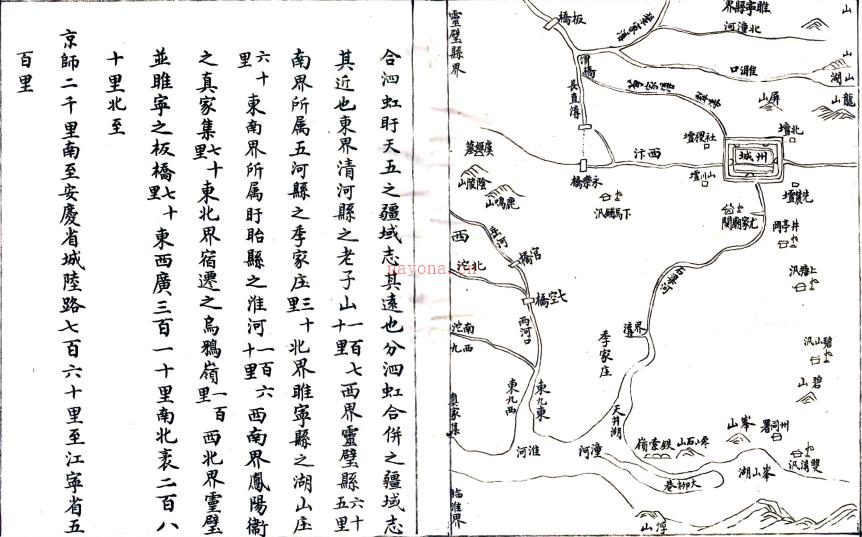 睢寧縣界
北潼河
山
山湖
龍山
睢口
屏山
板橋
靈璧縣界
長直溝
社稷壇
北壇
州城
西汴
永樂橋
山川壇
先農壇
虞姬墓
陰陵山
鹿鳴山
下馬鋪汛
尤家廟閘
井亭岡
上塘汛
西
北沱
宮橋
七空橋
石梁河
南沱
西九
兩河口
界溝
季家庄
碧山汛
碧山
東九西
東九東
天井湖
真家集
淮河
潼河
鉄索嶺
峯山
州同署
雙溝汛
峯山湖
大柳巷
臨淮界
浮山
合泗虹盱天五之疆域志其遠也分泗虹合併之疆域志
其近也東界清河縣之老子山一百七十里西界靈璧縣六十五里
南界所属五河縣之季家庄三十里北界睢寧縣之湖山庄
六十里東南界所属盱眙縣之淮河一百六十里西南界鳳陽衞
之真家集七十里東北界宿遷之烏鴉嶺一百里西北界靈璧
並睢寧之板橋七十里東西廣三百一十里南北袤二百八
十里北至
京師二千里南至安慶省城陸路七百六十里至江寧省五
百里
nayona.cn